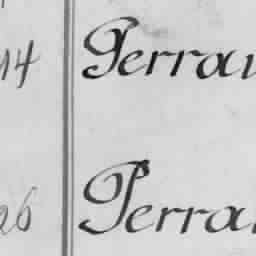 14 Perrau
26 Perra